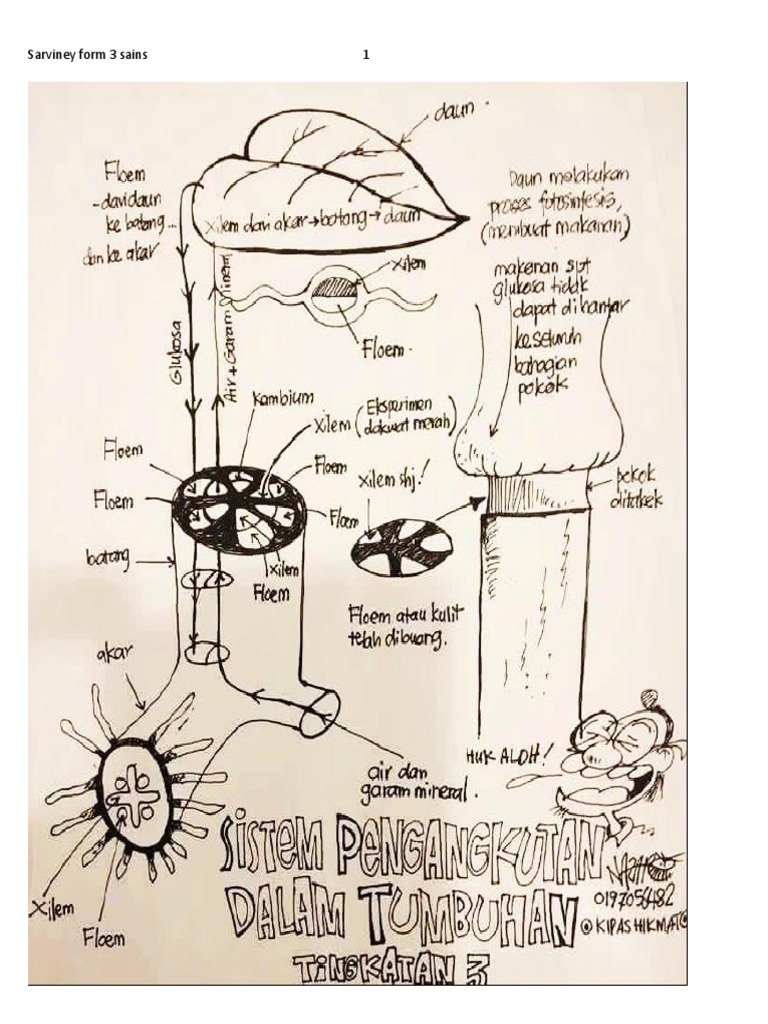 Sarviney form 3 sains
1
daun.
Floem
- dari daun
ke batang...
dan ke akar
xilem dari akar → batang → daun
Daun melakukan
proses fotosintesis,
(membuat makanan)
makanan spt
glukosa tidak
dapat dihantar
keseluruh
bahagian
pokok
xilem
Floem.
Glukosa
Air + Garam Minera
kambium
xilem (Eksperimen
dakwat merah)
Floem
Floem
Floem
Floem
xilem
Floem
xilem shj!
pokok
ditakek
batang
Floem atau kulit
telah dibuang.
akar
HUK ALOH!
air dan
garam mineral.
SISTEM PENGANGKUTAN
DALAM TUMBUHAN
TINGKATAN 3
0197056482
@KIPASHIKMAT
xilem
Floem